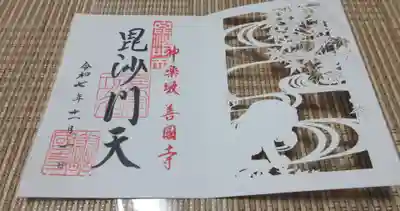 神楽坂 善國寺
毘沙門天
令和七年十一月
日